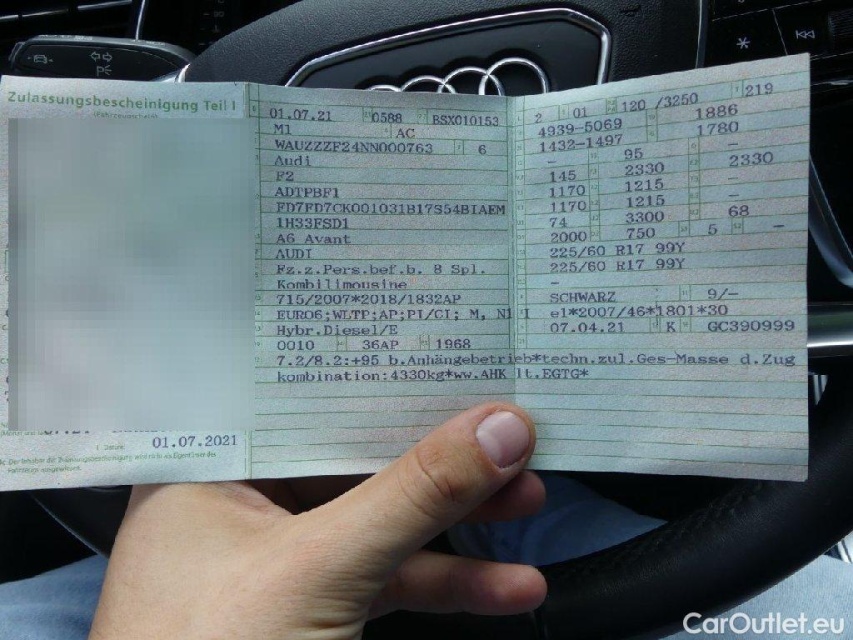 Zulassungsbescheinigung Teil I
01.07.2021
01.07.21 0588 BSX010153
M1 AC
WAUZZZF24NN000763 6
Audi
F2
ADTPBF1
FD7FD7CK001031B17S54BIAEM
1H33FSD1
A6 Avant
AUDI
Fz.z.Pers.bef.b. 8 Spl.
Kombilimousine
715/2007*2018/1832AP
EURO6;WLTP;AP;PI/CI; M, N1 I
Hybr.Diesel/E
0010 36AP 1968
7.2/8.2:+95 b.Anhängebetrieb*techn.zul.Ges-Masse d.Zug
kombination:4330kg*ww.AHK lt.EGTG*
2 01 120 /3250 219
4939-5069 1886
1432-1497 1780
- 95 -
145 2330 2330
1170 1215 -
1170 1215 -
74 3300 68
2000 750 5 -
225/60 R17 99Y
225/60 R17 99Y
-
SCHWARZ 9/-
e1*2007/46*1801*30
07.04.21 K GC390999
CarOutlet.eu